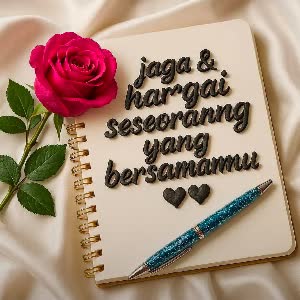 jaga &
hargai
seseoranng
yang
bersamamu